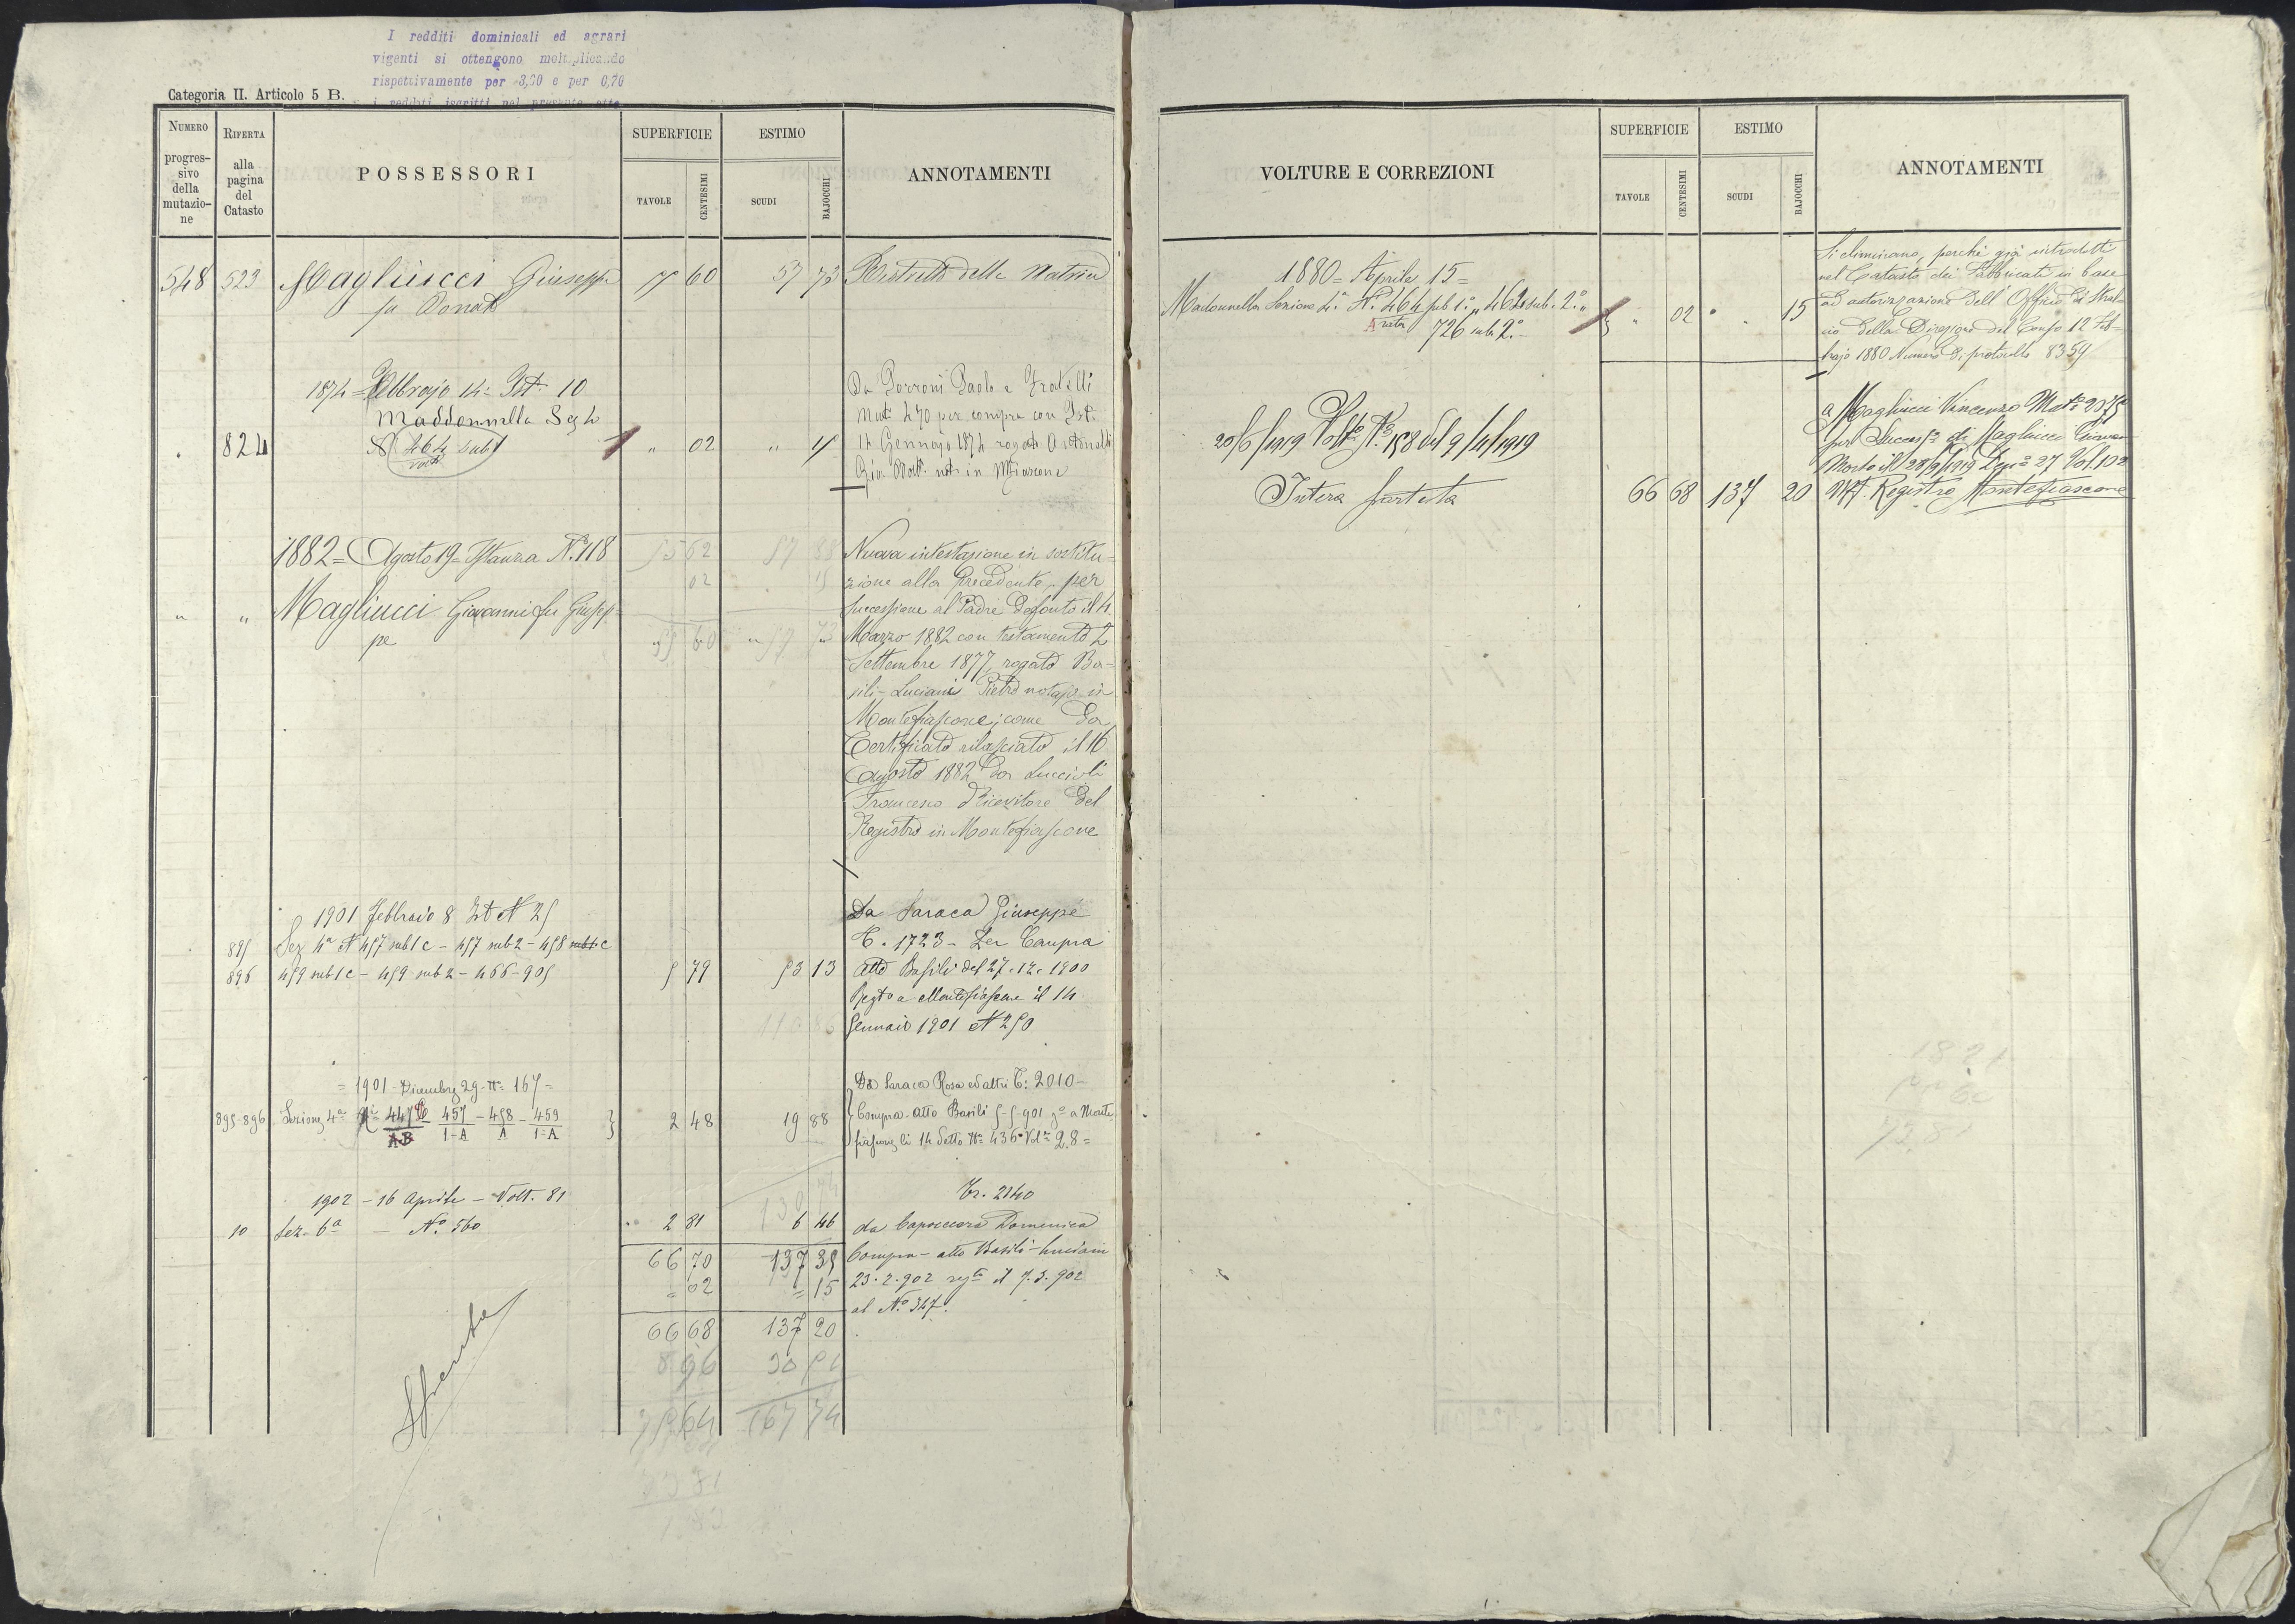 I redditi dominicali ed agrari
vigenti si ottengono moltiplicando
rispettivamente per 3,00 e per 0,70
i redditi iscritti nel presente
Categoria II. Articolo 5 B.
NUMERO progres-sivo della mutazio-ne
RIFERTA alla pagina del Catasto
POSSESSORI
SUPERFICIE
TAVOLE
CENTESIMI
ESTIMO
SCUDI
BAJOCCHI
ANNOTAMENTI
548 523 Magliucci Giuseppe 60 57 73 Ristretto della Matrice
fu Donato
1874 = Febbrajo 14 = Ist. 10
Maddonnella Sez 4
824 N 464 sub 1 " 02 "
Da Porroni Paolo e Fratelli
Mut. 470 per compra con Ist.
14 Gennajo 1874 rogato
not. in Mfiascone
1882 = Agosto 19 = Istanza N.° 118
" " Magliucci Giovanni fu Giusep-
pe
Nuova intestazione in sostitu-
zione alla precedente, per
successione al Padre defonto il 4
Marzo 1882 con testamento 2
Settembre 1877, rogato Ba-
sili-Luciani Pietro notajo in
Montefiascone; come da
Certificato rilasciato il 16
Agosto 1882 da Luccioli
Francesco Ricevitore del
Registro in Montefiascone
1901 Febbraio 8 Ist N 25
895 Sez 4a N 457 sub 1 c - 457 sub 2 - 458 sub 1 c
896 459 sub 1 c - 459 sub 2 - 466 - 905 5 79 53 13
Da Saraca Giuseppe
T. 1723 - Per Compra
atto Basili del 27.12.1900
Regto a Montefiascone il 14
Gennaio 1901 N 250
= 1901 - Dicembre 29 - No 167 =
895-896 Sezione 4a 447 457 - 458 - 459 } 2 48 19 88
AB 1-A A 1-A
Da Saraca Rosa ed altri T: 2010 -
Compra - atto Basili 5-5-901 go a Monte
fiascone li 14 detto No 436 Vol 28 =
1902 - 16 Aprile - Volt. 81
10 Sez. 6a - No. 560 2 81 6 46
Tr. 2140
da Domenica
Compra - atto Basili-Luciani
23.2.902 regto il 7.3.902
al No 347.
66 70 137 35
= 02 = 15
66 68 137 20
8 96 30 51
75 64 167 74
VOLTURE E CORREZIONI
SUPERFICIE
TAVOLE
CENTESIMI
ESTIMO
SCUDI
BAJOCCHI
ANNOTAMENTI
1880 = Aprile 15 =
Madonnella Sezione 4.a N.i 464 sub 1.o, 462 sub. 2.o " " 02 " 15
rata 726 sub 2.o
Si eliminano, perchè già introdotti
nel Catasto dei Fabbricati in base
ad autorizzazione dell' Officio di Stral-
cio della Direzione del Censo 12 Feb-
brajo 1880 Numero di protocollo 8359
20/6/1919 Volta N.o 158 del 9/4/1919
Intera partita 66 68 137 20
a Magliucci Vincenzo
per Success.e di Magliucci Giovan
Morto il 28/9/1919 27 Vol. 102
Registro Montefiascone